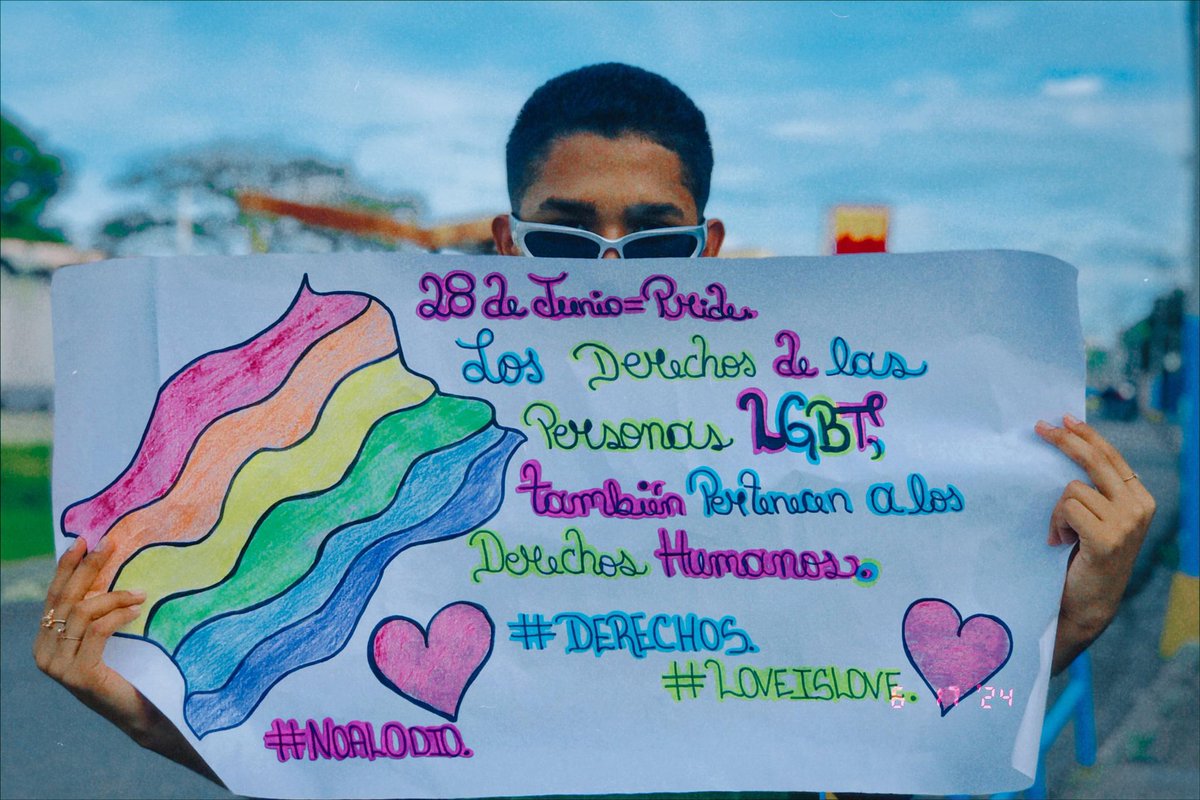 28 de Junio=Pride.
Los Derechos de las
Personas LGBT,
también Pertenecen a los
Derechos Humanos.
#DERECHOS.
#LOVEISLOVE.
6 17 '24
#NOALODIO.